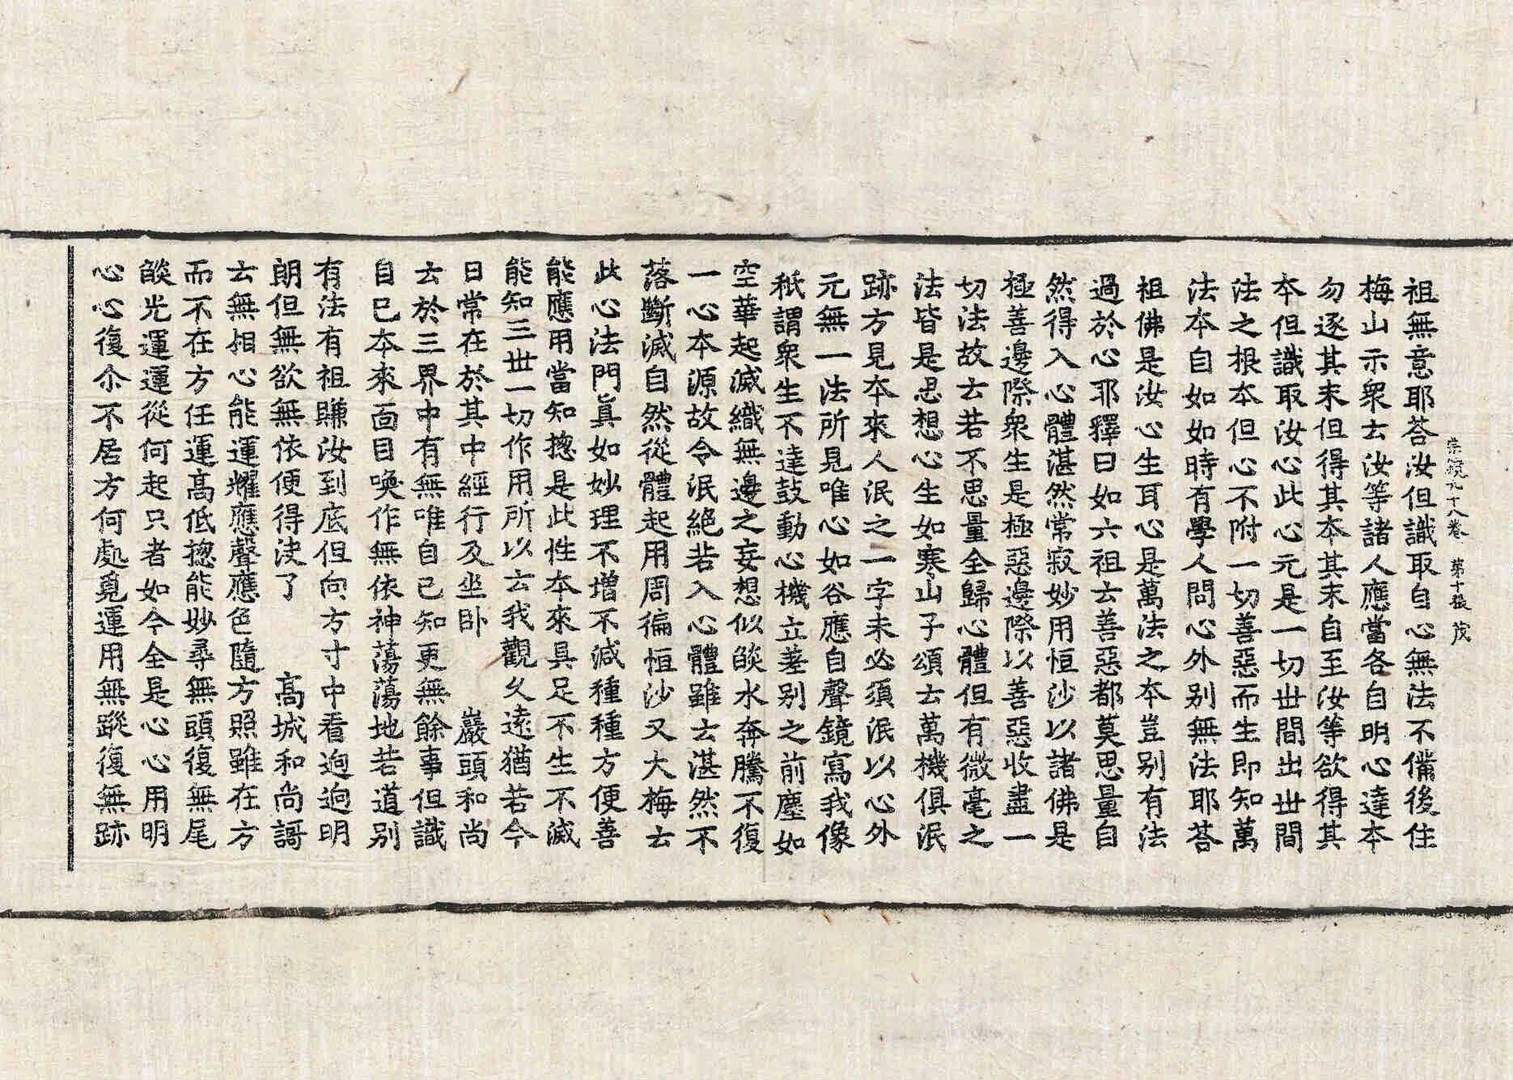 宗鏡九十八卷　第十張　茂
祖無意耶荅汝但識取自心無法不備後住
梅山示衆云汝等諸人應當各自明心達本
勿逐其末但得其本其末自至汝等欲得其
本但識取汝心此心元是一切世間出世間
法之根本但心不附一切善惡而生即知萬
法本自如如時有學人問心外别無法耶荅
祖佛是汝心生耳心是萬法之本豈别有法
過於心耶釋曰如六祖云善惡都莫思量自
然得入心體湛然常寂妙用恒沙以諸佛是
極善邊際衆生是極惡邊際以善惡收盡一
切法故云若不思量全歸心體但有微毫之
法皆是思想心生如寒山子頌云萬機俱泯
跡方見本來人泯之一字未必須泯以心外
元無一法所見唯心如谷應自聲鏡寫我像
秖謂衆生不達鼓動心機立差别之前塵如
空華起滅織無邊之妄想似燄水奔騰不復
一心本源故令泯絶若入心體雖云湛然不
落斷滅自然從體起用周徧恒沙又大梅云
此心法門眞如妙理不增不減種種方便善
能應用當知揔是此性本來具足不生不滅
能知三世一切作用所以云我觀久遠猶若今
日常在於其中經行及坐卧　巖頭和尚
云於三界中有無唯自己知更無餘事但識
自己本來面目喚作無依神蕩蕩地若道别
有法有祖賺汝到底但向方寸中看逈逈明
朗但無欲無依便得決了　高城和尚謌
云無相心能運耀應聲應色隨方照雖在方
而不在方任運高低揔能妙尋無頭復無尾
燄光運運從何起只者如今全是心心用明
心心復尒不居方何處覓運用無蹤復無跡